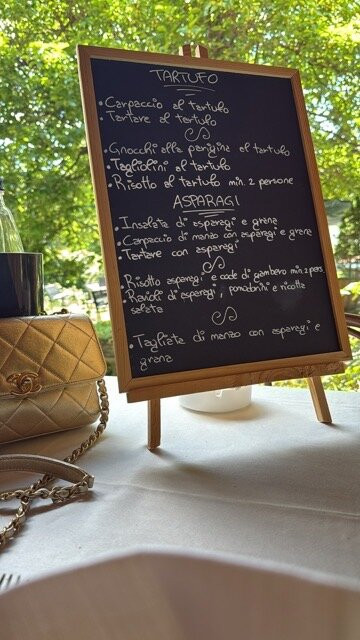 TARTUFO
• Carpaccio al tartufo
• Tartare al tartufo
• Gnocchi alla parigina al tartufo
• Tagliolini al tartufo
• Risotto al tartufo min. 2 persone
ASPARAGI
• Insalata di asparagi e grana
• Carpaccio di manzo con asparagi e grana
• Tartare con asparagi
• Risotto asparagi e code di gambero min. 2 pers.
• Ravioli di asparagi, pomodorini e ricotta
salata
• Tagliata di manzo con asparagi e
grana